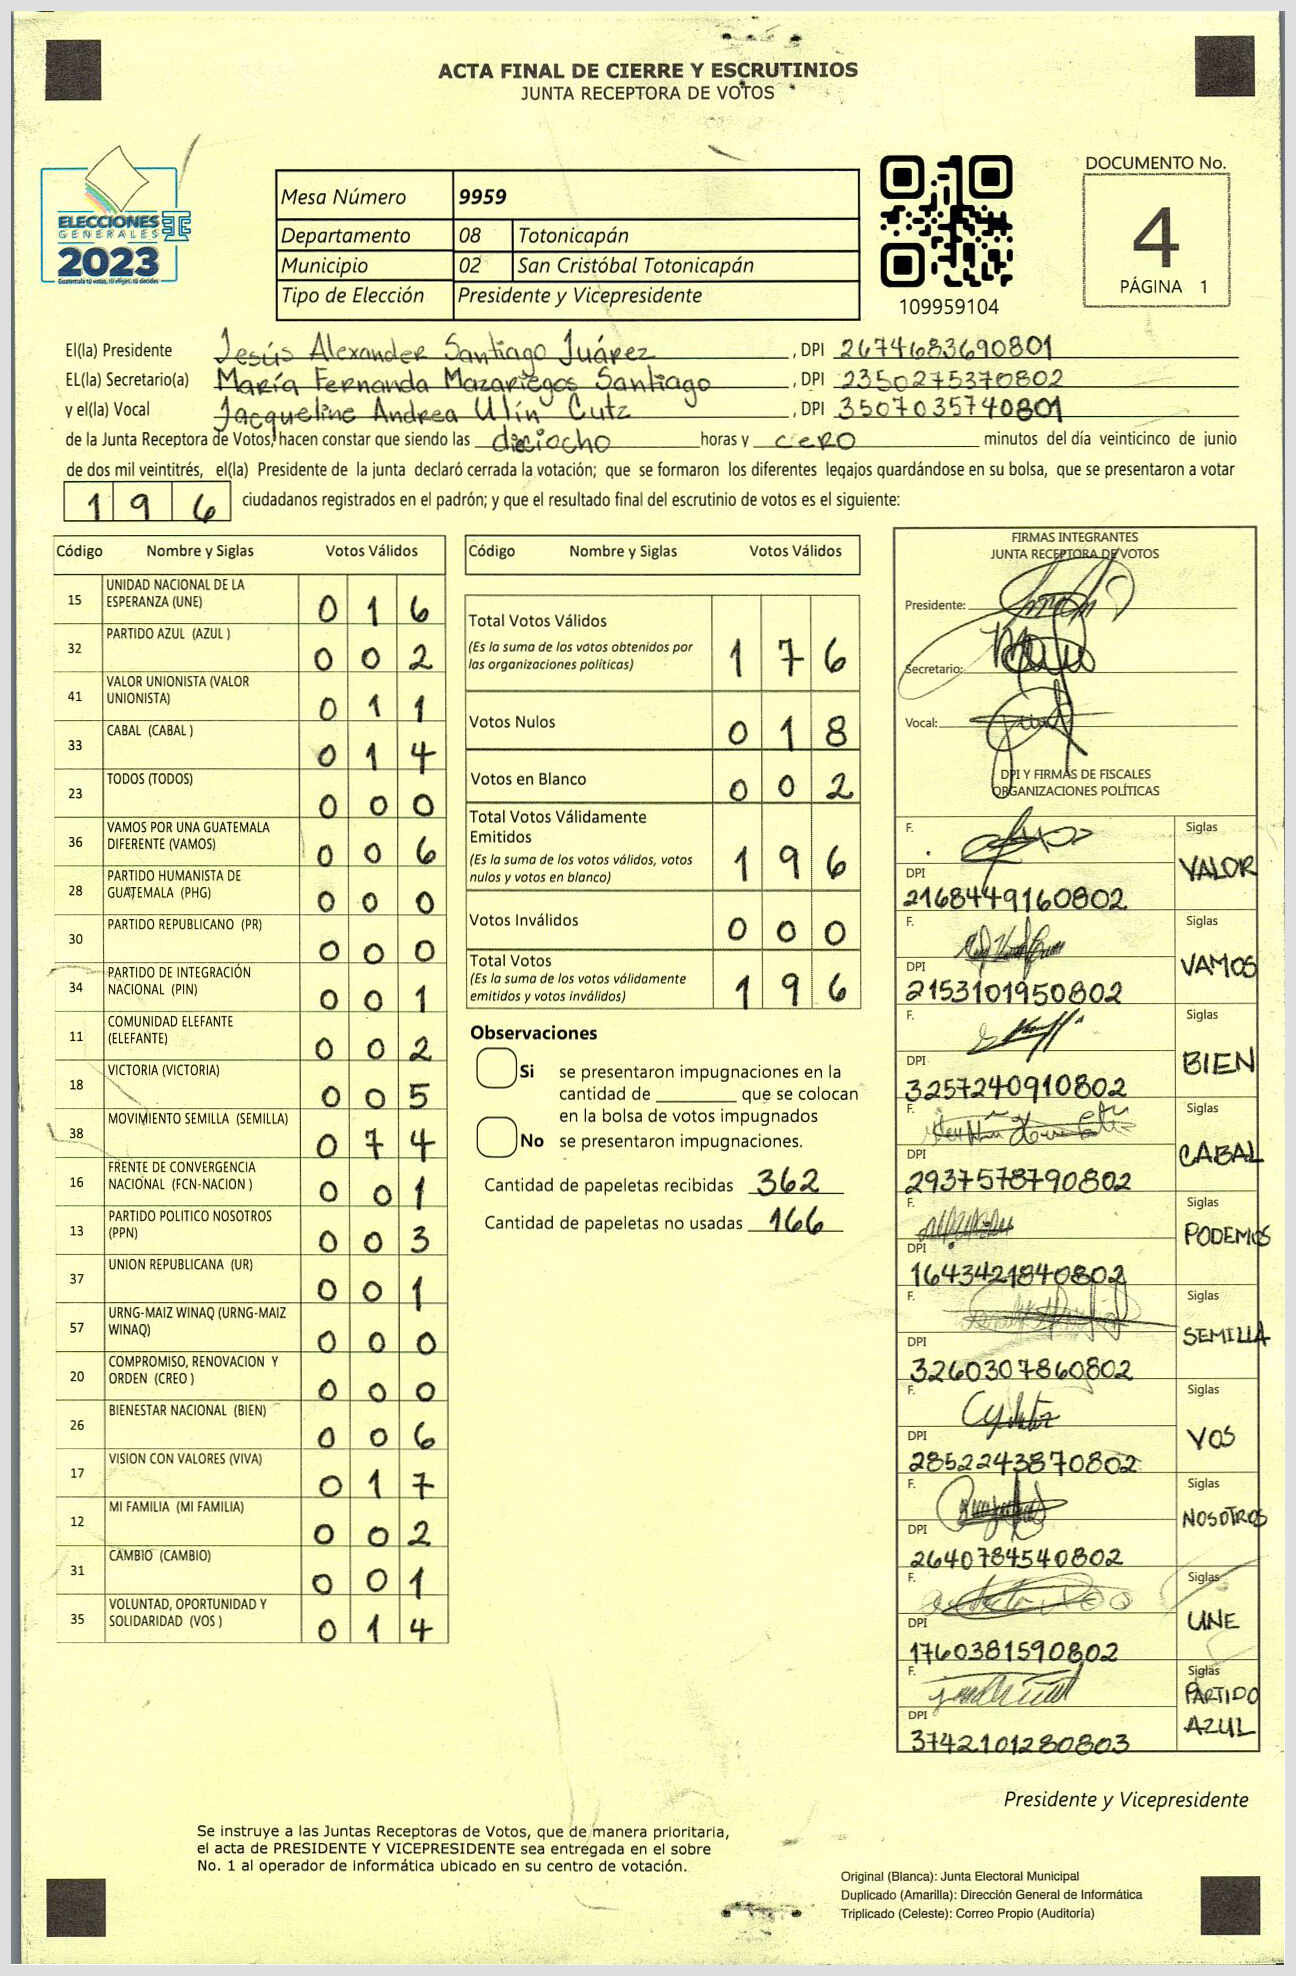 ACTA FINAL DE CIERRE Y ESCRUTINIOS
JUNTA RECEPTORA DE VOTOS
ELECCIONES
GENERALES
2023
Guatemala tú votas, tú eliges, tú decides
Mesa Número 9959
Departamento 08 Totonicapán
Municipio 02 San Cristóbal Totonicapán
Tipo de Elección Presidente y Vicepresidente
109959104
DOCUMENTO No.
4
PÁGINA 1
El(la) Presidente Jesús Alexander Santiago Juárez , DPI 2674683690801
EL(la) Secretario(a) María Fernanda Mazariegos Santiago , DPI 2350275370802
y el(la) Vocal Jacqueline Andrea Ulín Cutz , DPI 3507035740801
de la Junta Receptora de Votos, hacen constar que siendo las dieciocho horas y cero minutos del día veinticinco de junio
de dos mil veintitrés, el(la) Presidente de la junta declaró cerrada la votación; que se formaron los diferentes legajos guardándose en su bolsa, que se presentaron a votar
196 ciudadanos registrados en el padrón; y que el resultado final del escrutinio de votos es el siguiente:
Código Nombre y Siglas Votos Válidos
15 UNIDAD NACIONAL DE LA
ESPERANZA (UNE) 016
32 PARTIDO AZUL (AZUL ) 002
41 VALOR UNIONISTA (VALOR
UNIONISTA) 011
33 CABAL (CABAL ) 014
23 TODOS (TODOS) 000
36 VAMOS POR UNA GUATEMALA
DIFERENTE (VAMOS) 006
28 PARTIDO HUMANISTA DE
GUATEMALA (PHG) 000
30 PARTIDO REPUBLICANO (PR) 000
34 PARTIDO DE INTEGRACIÓN
NACIONAL (PIN) 001
11 COMUNIDAD ELEFANTE
(ELEFANTE) 002
18 VICTORIA (VICTORIA) 005
38 MOVIMIENTO SEMILLA (SEMILLA) 074
16 FRENTE DE CONVERGENCIA
NACIONAL (FCN-NACION ) 001
13 PARTIDO POLITICO NOSOTROS
(PPN) 003
37 UNION REPUBLICANA (UR) 001
57 URNG-MAIZ WINAQ (URNG-MAIZ
WINAQ) 000
20 COMPROMISO, RENOVACION Y
ORDEN (CREO ) 000
26 BIENESTAR NACIONAL (BIEN) 006
17 VISION CON VALORES (VIVA) 017
12 MI FAMILIA (MI FAMILIA) 002
31 CAMBIO (CAMBIO) 001
35 VOLUNTAD, OPORTUNIDAD Y
SOLIDARIDAD (VOS ) 014
Código Nombre y Siglas Votos Válidos
Total Votos Válidos
(Es la suma de los votos obtenidos por
las organizaciones políticas) 176
Votos Nulos 018
Votos en Blanco 002
Total Votos Válidamente
Emitidos
(Es la suma de los votos válidos, votos
nulos y votos en blanco) 196
Votos Inválidos 000
Total Votos
(Es la suma de los votos válidamente
emitidos y votos inválidos) 196
Observaciones
Si se presentaron impugnaciones en la
cantidad de ________ que se colocan
en la bolsa de votos impugnados
No se presentaron impugnaciones.
Cantidad de papeletas recibidas 362
Cantidad de papeletas no usadas 166
FIRMAS INTEGRANTES
JUNTA RECEPTORA DE VOTOS
Presidente:
Secretario:
Vocal:
DPI Y FIRMAS DE FISCALES
ORGANIZACIONES POLÍTICAS
F. Siglas
VALOR
DPI
2168449160802
F. Siglas
VAMOS
DPI
2153101950802
F. Siglas
BIEN
DPI
3257240910802
F. Siglas
CABAL
DPI
2937578790802
F. Siglas
PODEMOS
DPI
1643421840802
F. Siglas
SEMILLA
DPI
3260307860802
F. Siglas
VOS
DPI
2852243870802
F. Siglas
NOSOTROS
DPI
2640784540802
F. Siglas
UNE
DPI
1760381590802
F. Siglas
PARTIDO
AZUL
DPI
3742101280803
Presidente y Vicepresidente
Se instruye a las Juntas Receptoras de Votos, que de manera prioritaria,
el acta de PRESIDENTE Y VICEPRESIDENTE sea entregada en el sobre
No. 1 al operador de informática ubicado en su centro de votación.
Original (Blanca): Junta Electoral Municipal
Duplicado (Amarilla): Dirección General de Informática
Triplicado (Celeste): Correo Propio (Auditoría)